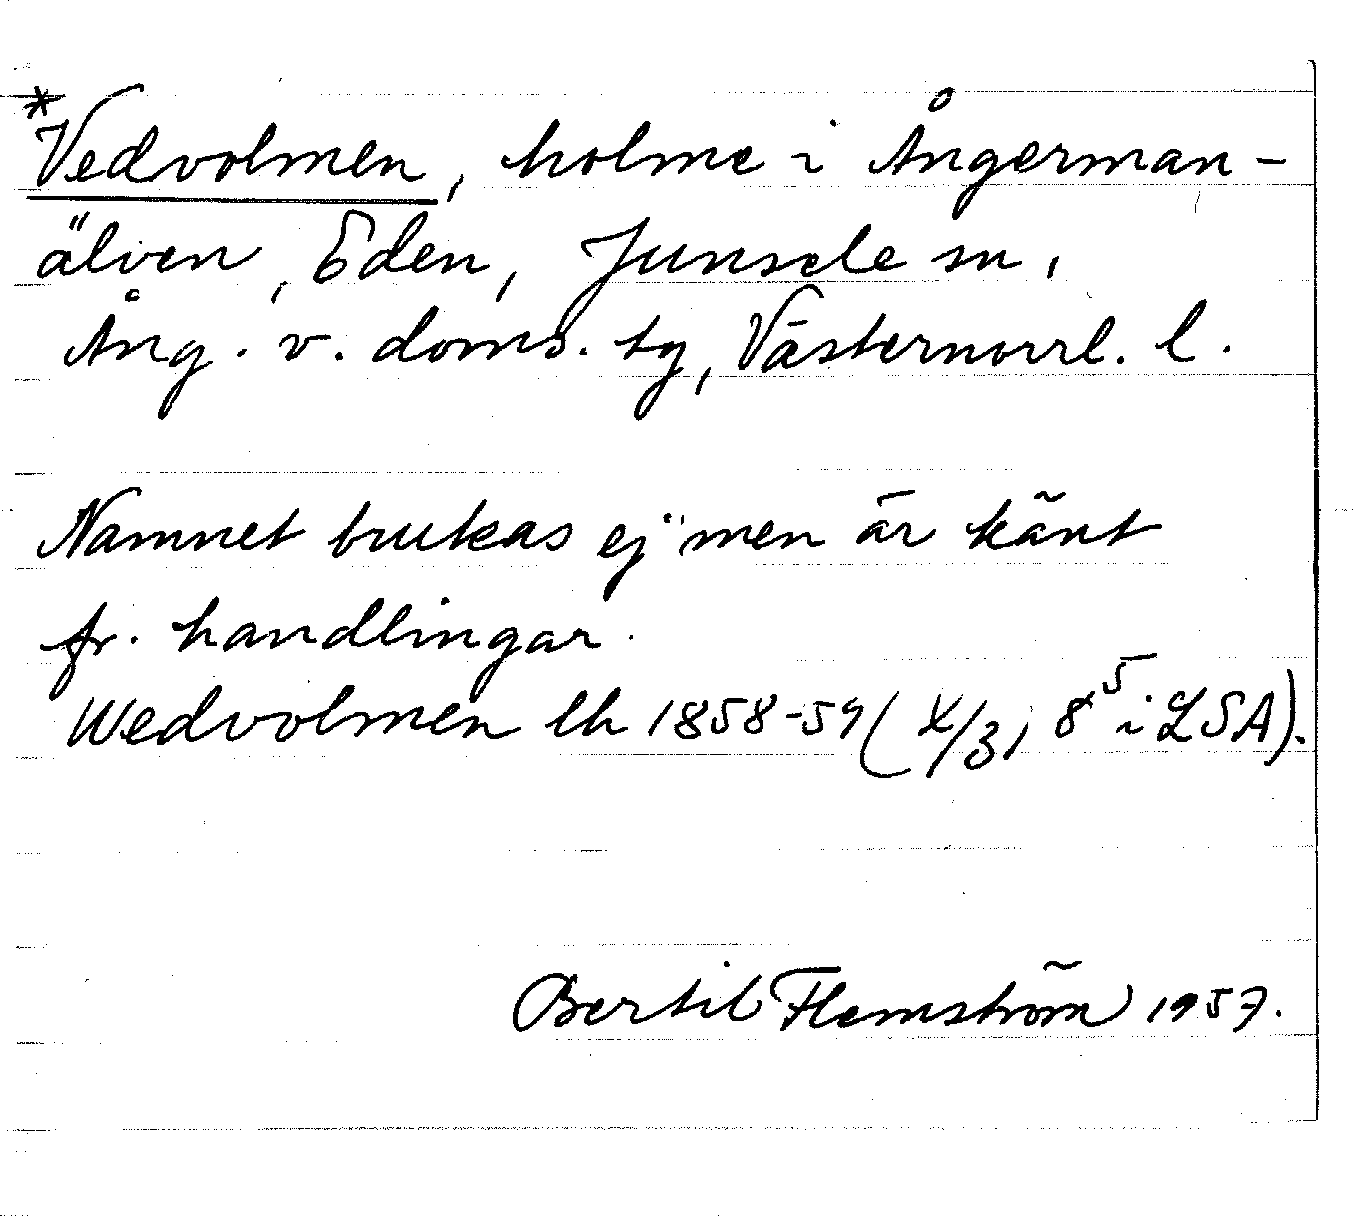 *Vedvolmen, holme i Ångerman-
älven, Eden, Junsele sn,
Ång. v. doms. tg, Västernorrl. l.
Namnet brukas ej men är känt
fr. handlingar.
Wedvolmen lh 1858-59 (X/3, 8⁵ i LSA).
Bertil Flemström 1957.